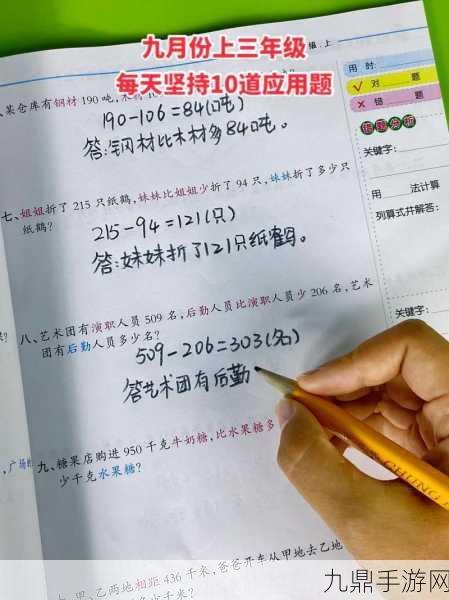 九月份上三年级
每天坚持10道应用题
级.上
某仓库有钢材 190 吨,
190-106=84(吨)
答:钢材比木材多84吨。
七、姐姐折了 215 只纸鹤,妹妹比姐姐少折了 94 只,妹妹折了多少只
纸鹤?
215-94=121(只)
答:妹妹折了121只纸鹤。
八、艺术团有演职人员 509 名,后勤人员比演职人员少 206 名,艺术
团有后勤人员多少名?
509-206=303(名)
答艺术团有后勤
广场
九、糖果店购进 950 千克牛奶糖,比水果糖多
少千克水果糖?
甲、乙两地相距 436 千米,爸爸开车从甲地去乙地
少千米?
用 时
✓ 对 题
✕ 错 题
错题分析
关键字:
用 法计算
列算式并解答:
关键字:
CHUNG
九鼎手游网